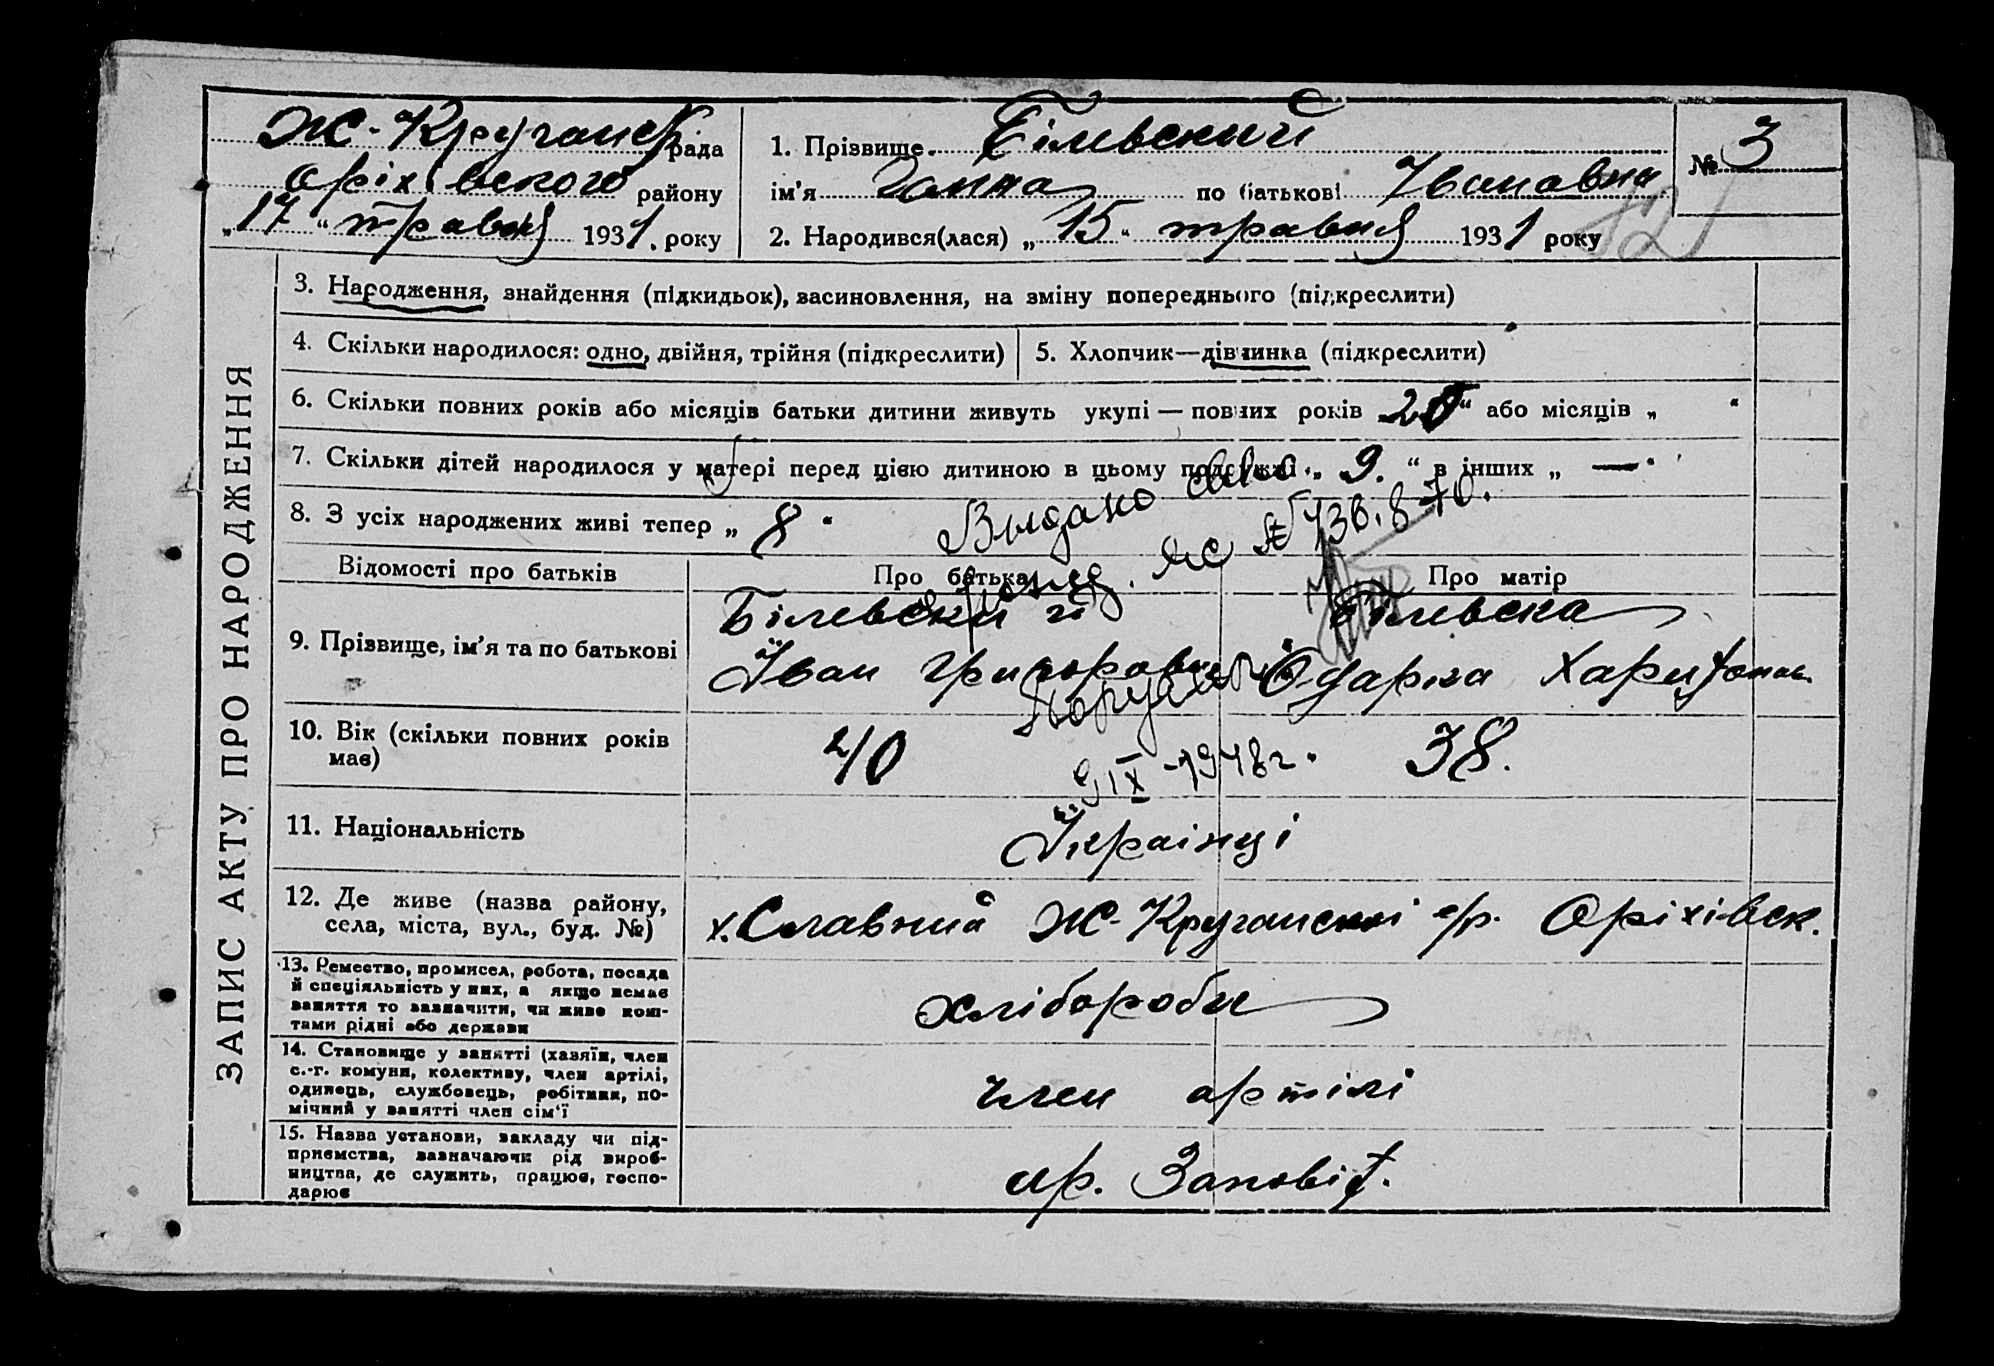 ЗАПИС АКТУ ПРО НАРОДЖЕННЯ
Ж-Круганск рада
Оріхівського району
„17“ травня 1931. року
1. Прізвище Білевский
ім'я Ганна по батькові Івановна
2. Народився(лася) „15“ травня 1931 року
№ 3
3. Народження, знайдення (підкидьок), засиновлення, на зміну попереднього (підкреслити)
4. Скільки народилося: одно, двійня, трійня (підкреслити)
5. Хлопчик—дівчинка (підкреслити)
6. Скільки повних років або місяців батьки дитини живуть укупі — повних років 20“ або місяців „ “
7. Скільки дітей народилося у матері перед цією дитиною в цьому подружжі „ 9. “ в інших „ — “
8. З усіх народжених живі тепер „ 8 “
Выдано св-во
ЯС № 136.870.
9 IX-1948 г.
Відомості про батьків
Про батька
Про матір
9. Прізвище, ім'я та по батькові
Білевский
Іван Григорович
Білевска
Одарка Харитонов
10. Вік (скільки повних років має)
40
38.
11. Національність
Українці
12. Де живе (назва району,
села, міста, вул., буд. №)
х. Славний Ж-Круганскої с/р. Оріхівск.
13. Ремество, промисел, робота, посада
й спеціяльність у них, а якщо немає
заняття то зазначити, чи живе кош-
тами рідні або держави
хлібороби
14. Становище у занятті (хазяїн, член
с.-г. комуни, колективу, член артілі,
одинець, службовець, робітник, по-
мічний у занятті член сім'ї
член артілі
15. Назва установи, закладу чи під-
приємства, зазначаючи рід вироб-
ництва, де служить, працює, госпо-
дарює
ар. Заповіт.